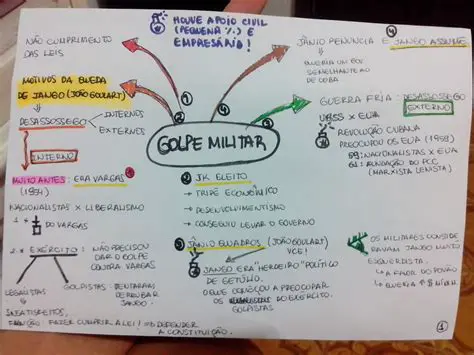 HOUVE APOIO CIVIL
(PEQUENA %) E
EMPRESÁRIO!
NÃO CUMPRIMENTO
DAS LEIS
MOTIVOS DA QUEDA
DE JANGO (JOÃO GOULART)
DESASSOSSEGO
INTERNOS
EXTERNOS
INTERNO
MUITO ANTES: ERA VARGAS
(1954)
NACIONALISTAS X LIBERALISMO
1 *
DO VARGAS
2. * EXÉRCITO: NÃO PRECISOU
DAR O GOLPE
CONTRA VARGAS
LEGALISTAS
GOLPISTAS:
DERRUBAR
JANGO
INSATISFEITOS,
FUNÇÃO: FAZER CUMPRIR A LEI / DEFENDER
A CONSTITUIÇÃO.
GOLPE MILITAR
1
2
3
4
2 JK ELEITO
→ TRIPÉ ECONÔMICO
→ DESENVOLVIMENTISMO
→ CONSEGUIU LEVAR O GOVERNO
3 JÂNIO QUADROS (JOÃO GOULART)
VICE!
JANGO ERA "HERDEIRO" POLÍTICO
DE GETÚLIO.
ELE COMEÇOU A PREOCUPAR
OS DO EXÉRCITO.
GOLPISTAS
4
JÂNIO RENUNCIA E JANGO ASSUME
→ QUERIA UM GOV
SEMELHANTE AO
DE CUBA
GUERRA FRIA: DESASSOSSEGO
EXTERNO
URSS X EUA
REVOLUÇÃO CUBANA
PREOCUPOU OS EUA (1959)
59: NACIONALISTAS X EUA
61: DO PCC
(MARXISTA LENISTA)
OS MILITARES CONSIDE
RAVAM JANGO MUITO
ESQUERDISTA.
→ A FAVOR DO POVÃO
→ QUERIA ↑ S. MÍN.
1